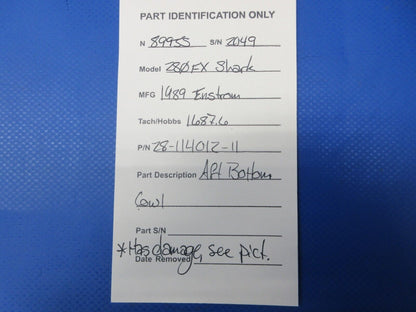 PART IDENTIFICATION ONLY
N 8995S S/N 2049
Model 280FX Shark
MFG 1989 Enstrom
Tach/Hobbs 1687.6
P/N 28-114012-11
Part Description Aft Bottom
Cowl
Part S/N
*Has damage, see pict.
Date Removed